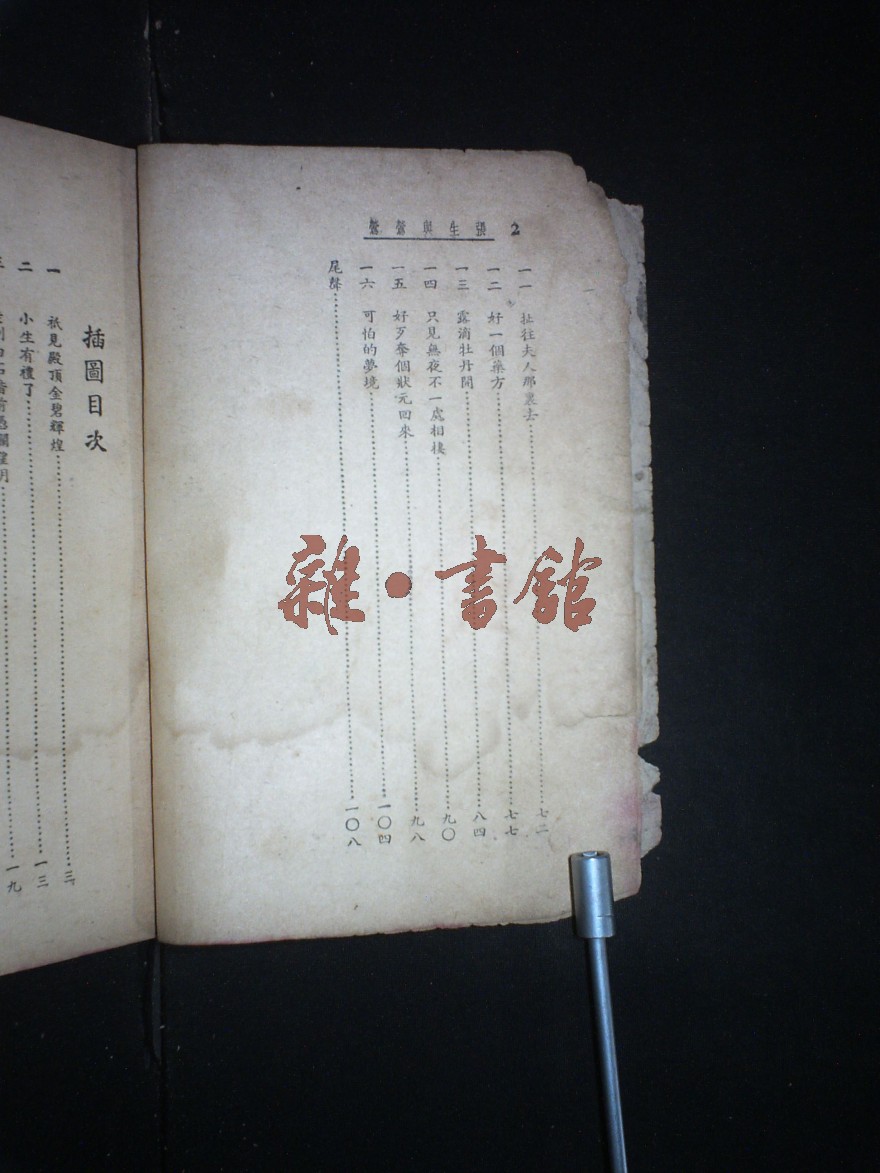 2 張生與鶯鶯
一一 扯往夫人那裏去 七二
一二 好一個藥方 七七
一三 露滴牡丹開 八四
一四 只見無夜不一處相樓 九〇
一五 好歹奪個狀元回來 九八
一六 可怕的夢境 一〇四
尾聲 一〇八
雜·書館
插圖目次
一 祇見殿頂金碧輝煌 三
二 小生有禮了 一三
三 一九